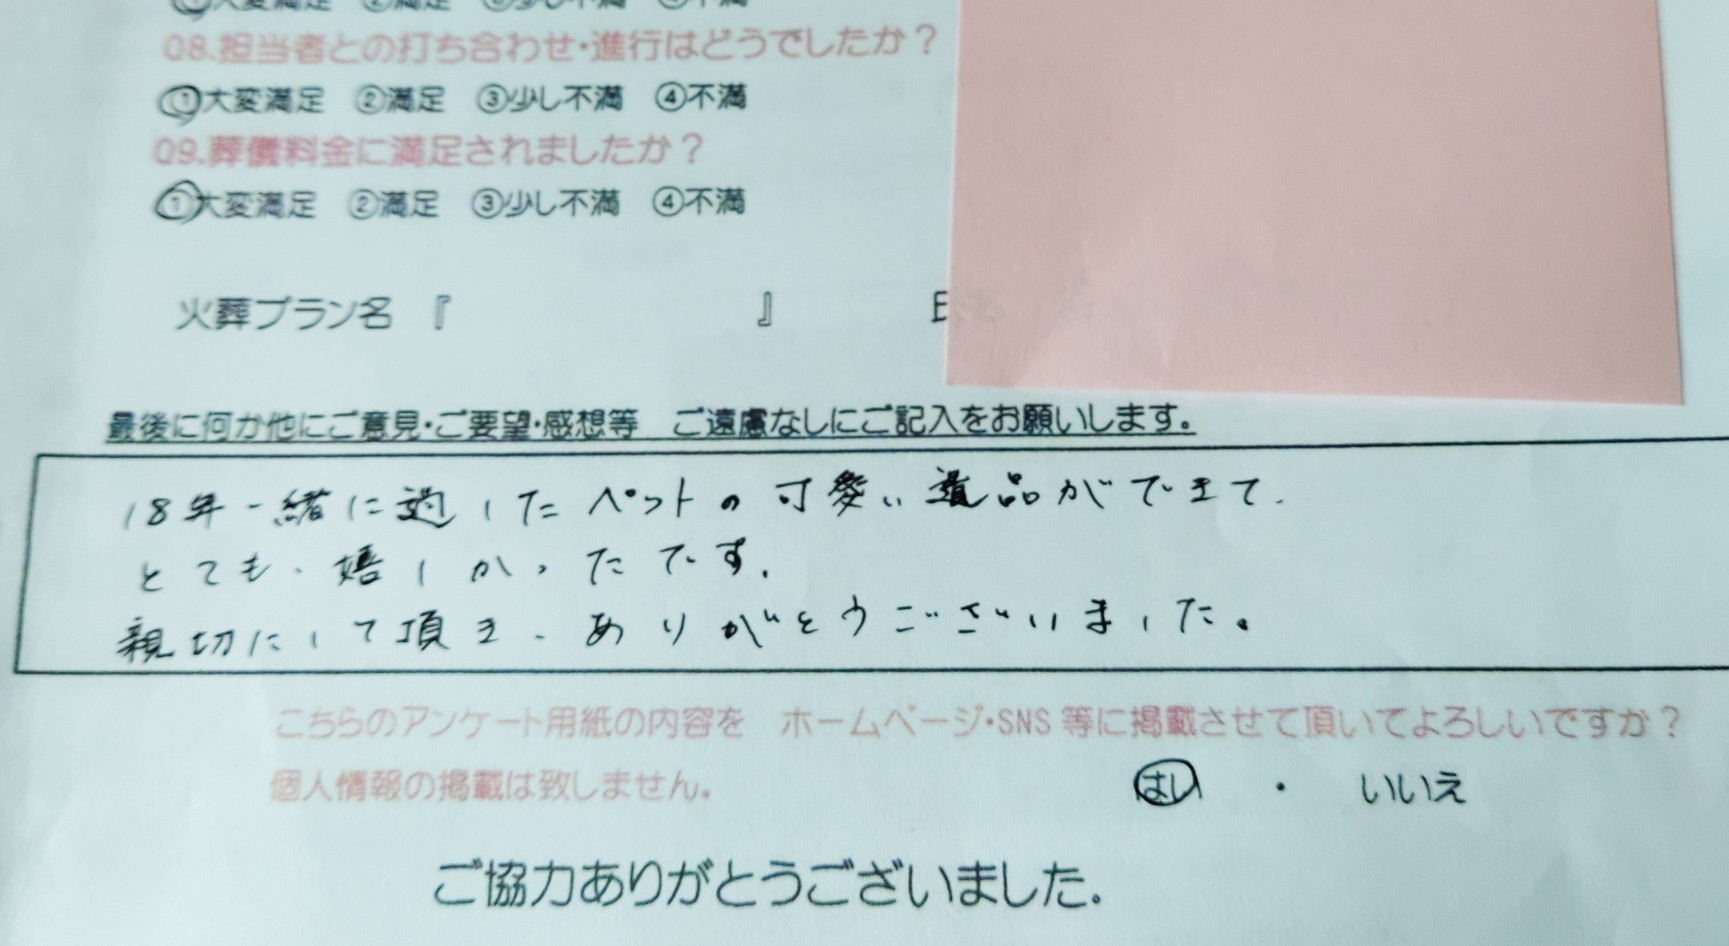 ①大変満足 ②満足 ③少し不満 ④不満
Q8.担当者との打ち合わせ・進行はどうでしたか？
①大変満足 ②満足 ③少し不満 ④不満
Q9.葬儀料金に満足されましたか？
①大変満足 ②満足 ③少し不満 ④不満
火葬プラン名 『 』
最後に何か他にご意見・ご要望・感想等 ご遠慮なしにご記入をお願いします。
18年一緒に過したペットの可愛い遺品ができて、
とても、嬉しかったです。
親切にして頂き、ありがとうございました。
こちらのアンケート用紙の内容を ホームページ・SNS等に掲載させて頂いてよろしいですか？
個人情報の掲載は致しません。 はい ・ いいえ
ご協力ありがとうございました。